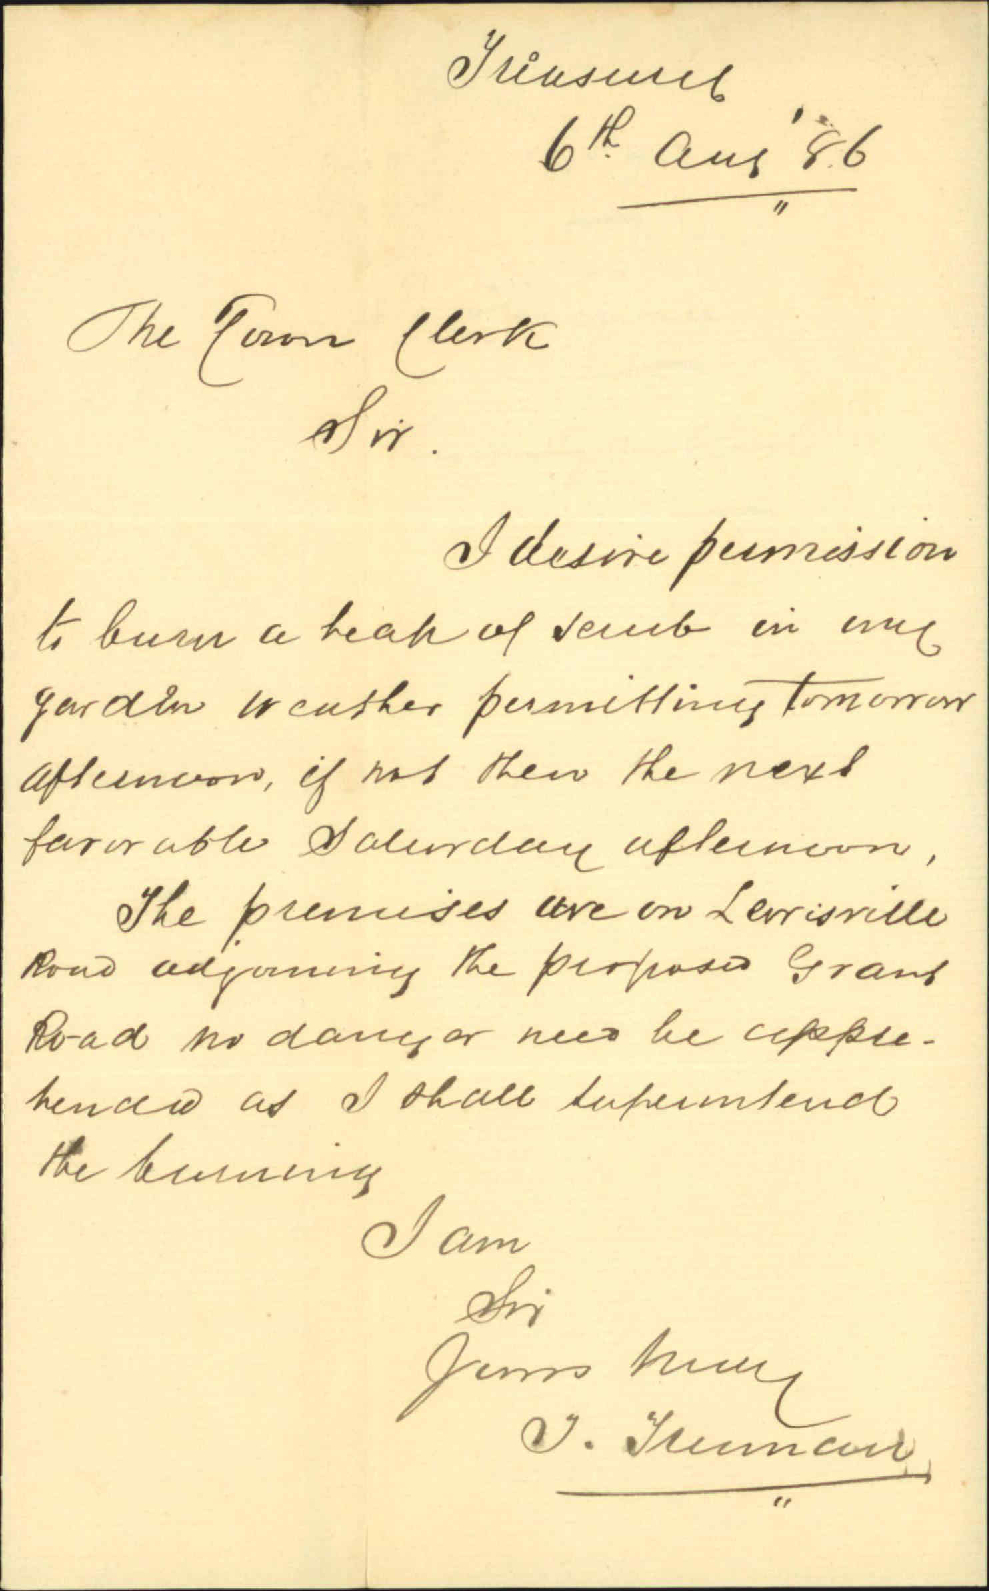 Treasury
6th Aug '86
The Town Clerk
Sir.
I desire permission
to burn a heap of scrub in my
garden weather permitting tomorrow
afternoon, if not then the next
favorable Saturday afternoon,
The premises are on Lewisville
Road adjoining the proposed Grant
Road no danger need be appre-
hended as I shall superintend
the burning
I am
Sir
Yours truly
J.